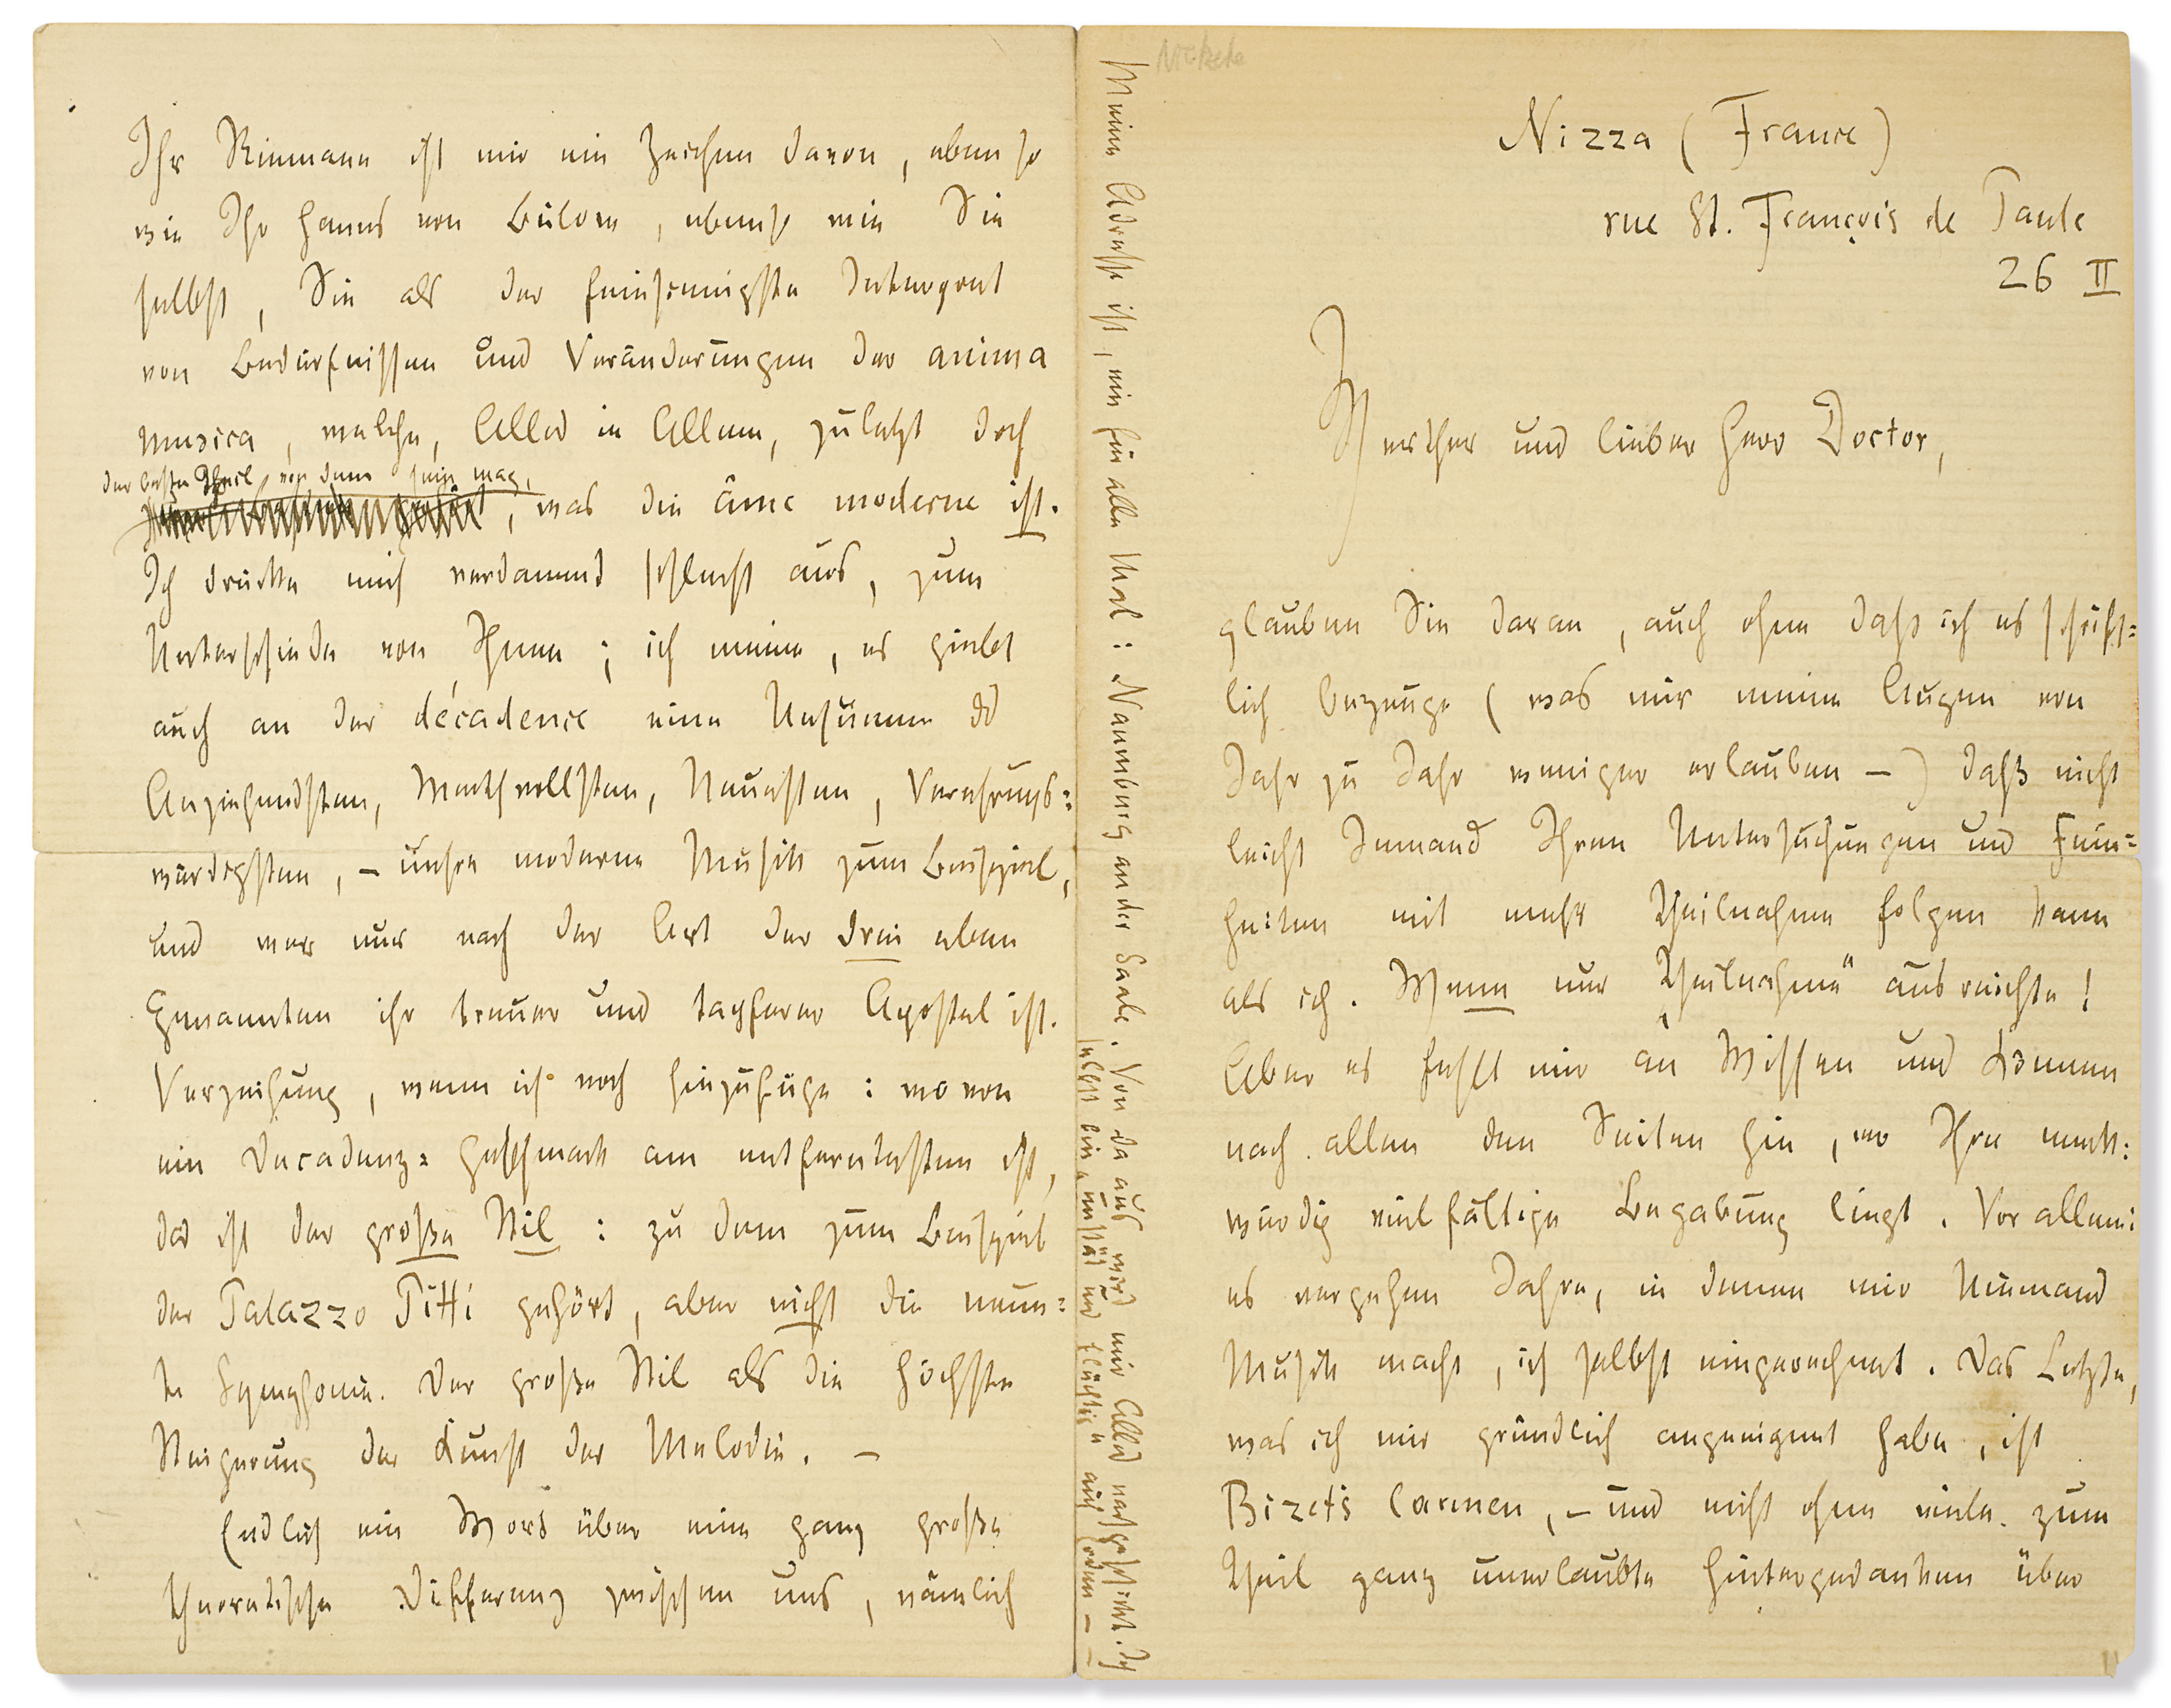 Ihr Riemann ist mir ein Zeichen davon, eben so
wie Ihr Hanns von Bülow, ebenso wie Sie
selbst, Sie als der feinsinnigste Interpret
von Bedürfnissen und Veränderungen der anima
musica, welche, Alles in Allem, zuletzt doch
der beste Theil von dem sein mag,
, was die âme moderne ist.
Ich drückte mich verdammt schlecht aus, zum
Unterschiede von Ihnen; ich meine, es giebt
auch an der décadence eine Unsumme des
Anziehendsten, Werthvollsten, Neuesten, Verehrungs=
würdigsten, – unsre moderne Musik zum Beispiel,
und wer nur nach der Art der drei eben
Genannten ihr treuer und tapferer Apostel ist.
Verzeihung, wenn ich noch hinzufüge: wovon
ein Decadenz=Geschmack am entferntesten ist,
das ist der große Stil: zu dem zum Beispiel
der Palazzo Pitti gehört, aber nicht die neun=
te Symphonie. Der große Stil als die höchste
Steigerung der Kunst der Melodie. –
Endlich ein Wort über eine ganz große
theoretische Differenz zwischen uns, nämlich
Meine Adresse ist, ein für alle Mal: Naumburg an der Saale. Von da aus wird mir Alles nachgeschickt. Ich
selbst bin „unstät und flüchtig“ auf Erden – –
Nizza (France)
rue St. François de Paule
26 II
Werther und lieber Herr Doctor,
glauben Sie daran, auch ohne daß ich es schrift=
lich bezeuge (was mir meine Augen von
Jahr zu Jahr weniger erlauben –) daß nicht
leicht Jemand Ihren Untersuchungen und Fein=
heiten mit mehr Theilnahme folgen kann
als ich. Wenn nur „Theilnahme“ ausreichte!
Aber es fehlt mir an Wissen und Können
nach allen den Seiten hin, wo Ihre merk=
würdig vielfältige Begabung liegt. Vor allem:
es vergehen Jahre, in denen mir Niemand
Musik macht, ich selbst eingerechnet. Das Letzte,
was ich mir gründlich angeeignet habe, ist
Bizet's Carmen, – und nicht ohne viele zum
Theil ganz unerlaubte Hintergedanken über